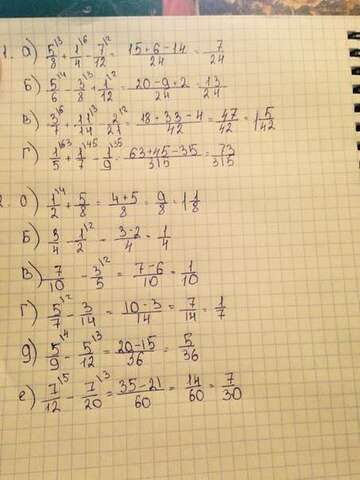 1. а) 5/8\3 + 1/4\6 - 7/12\2 = (15+6-14)/24 = 7/24
б) 5/6\4 - 3/8\3 + 1/12\2 = (20-9+2)/24 = 13/24
в) 3/7\6 + 11/14\3 - 2/21\2 = (18+33-4)/42 = 47/42 = 1 5/42
г) 1/5\63 + 1/7\45 - 1/9\35 = (63+45-35)/315 = 73/315
2. а) 1/2\4 + 5/8 = (4+5)/8 = 9/8 = 1 1/8
б) 3/4 - 1/2\2 = (3-2)/4 = 1/4
в) 7/10 - 3/5\2 = (7-6)/10 = 1/10
г) 5/7\2 - 3/14 = (10-3)/14 = 7/14 = 1/7
д) 5/9\4 - 5/12\3 = (20-15)/36 = 5/36
е) 7/12\5 - 7/20\3 = (35-21)/60 = 14/60 = 7/30